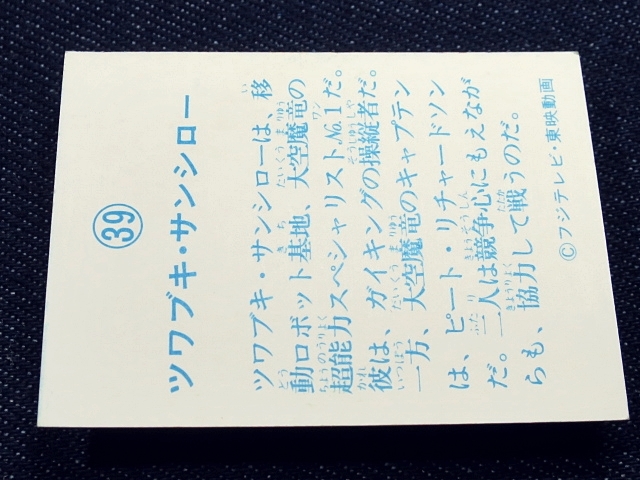 ㊴
ツワブキ・サンシロー
ツワブキ・サンシローは、移
動ロボット基地、大空魔竜の
超能力スペシャリストNo.1だ。
彼は、ガイキングの操縦者だ。
一方、大空魔竜のキャプテン
は、ピート・リチャードソン
だ。二人は競争心にもえなが
らも、協力して戦うのだ。
©フジテレビ・東映動画